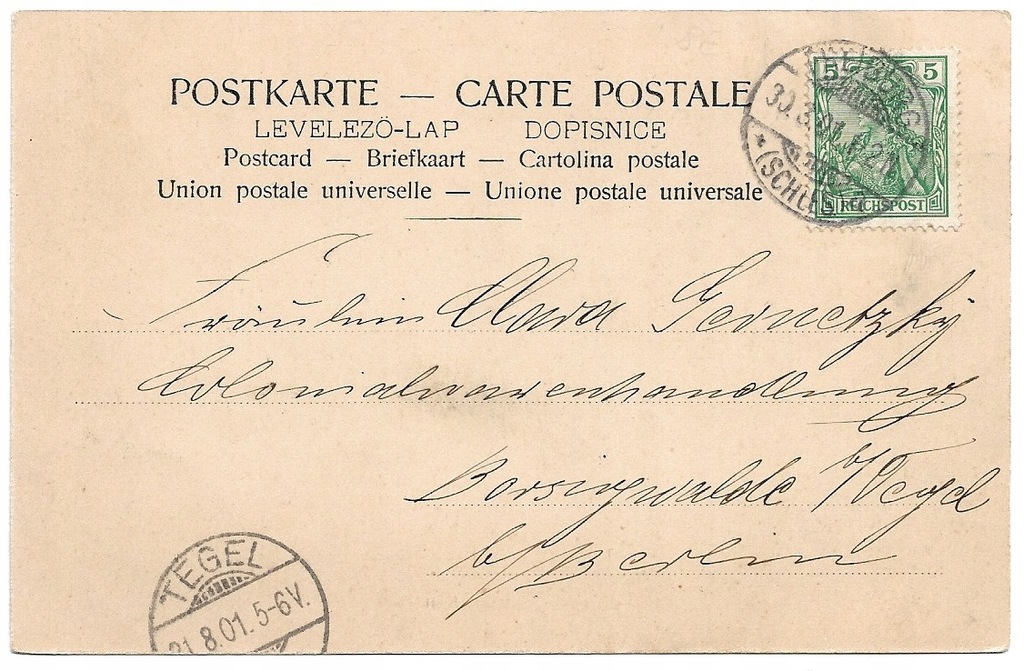 POSTKARTE — CARTE POSTALE
LEVELEZŐ-LAP DOPISNICE
Postcard — Briefkaart — Cartolina postale
Union postale universelle — Unione postale universale
5 5
REICHSPOST
(SCHLES.)
Fräulein Clara Gernetzky
Colonialwarenhandlung
Borsigwalde b/Tegel
b/Berlin
TEGEL
31.8.01. 5-6V.